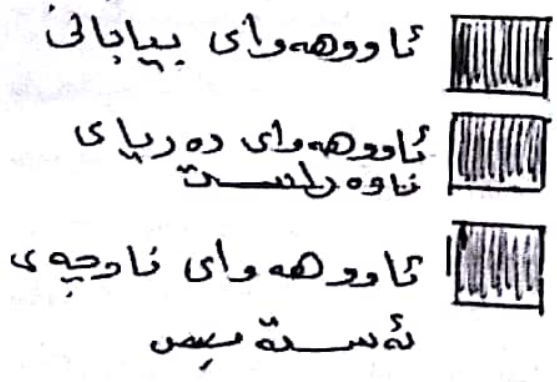 ئاووهەوای بیابانی
ئاووهەوای دەریای
ناوەڕاست
ئاووهەوای ناوچەی
ئەستێپس